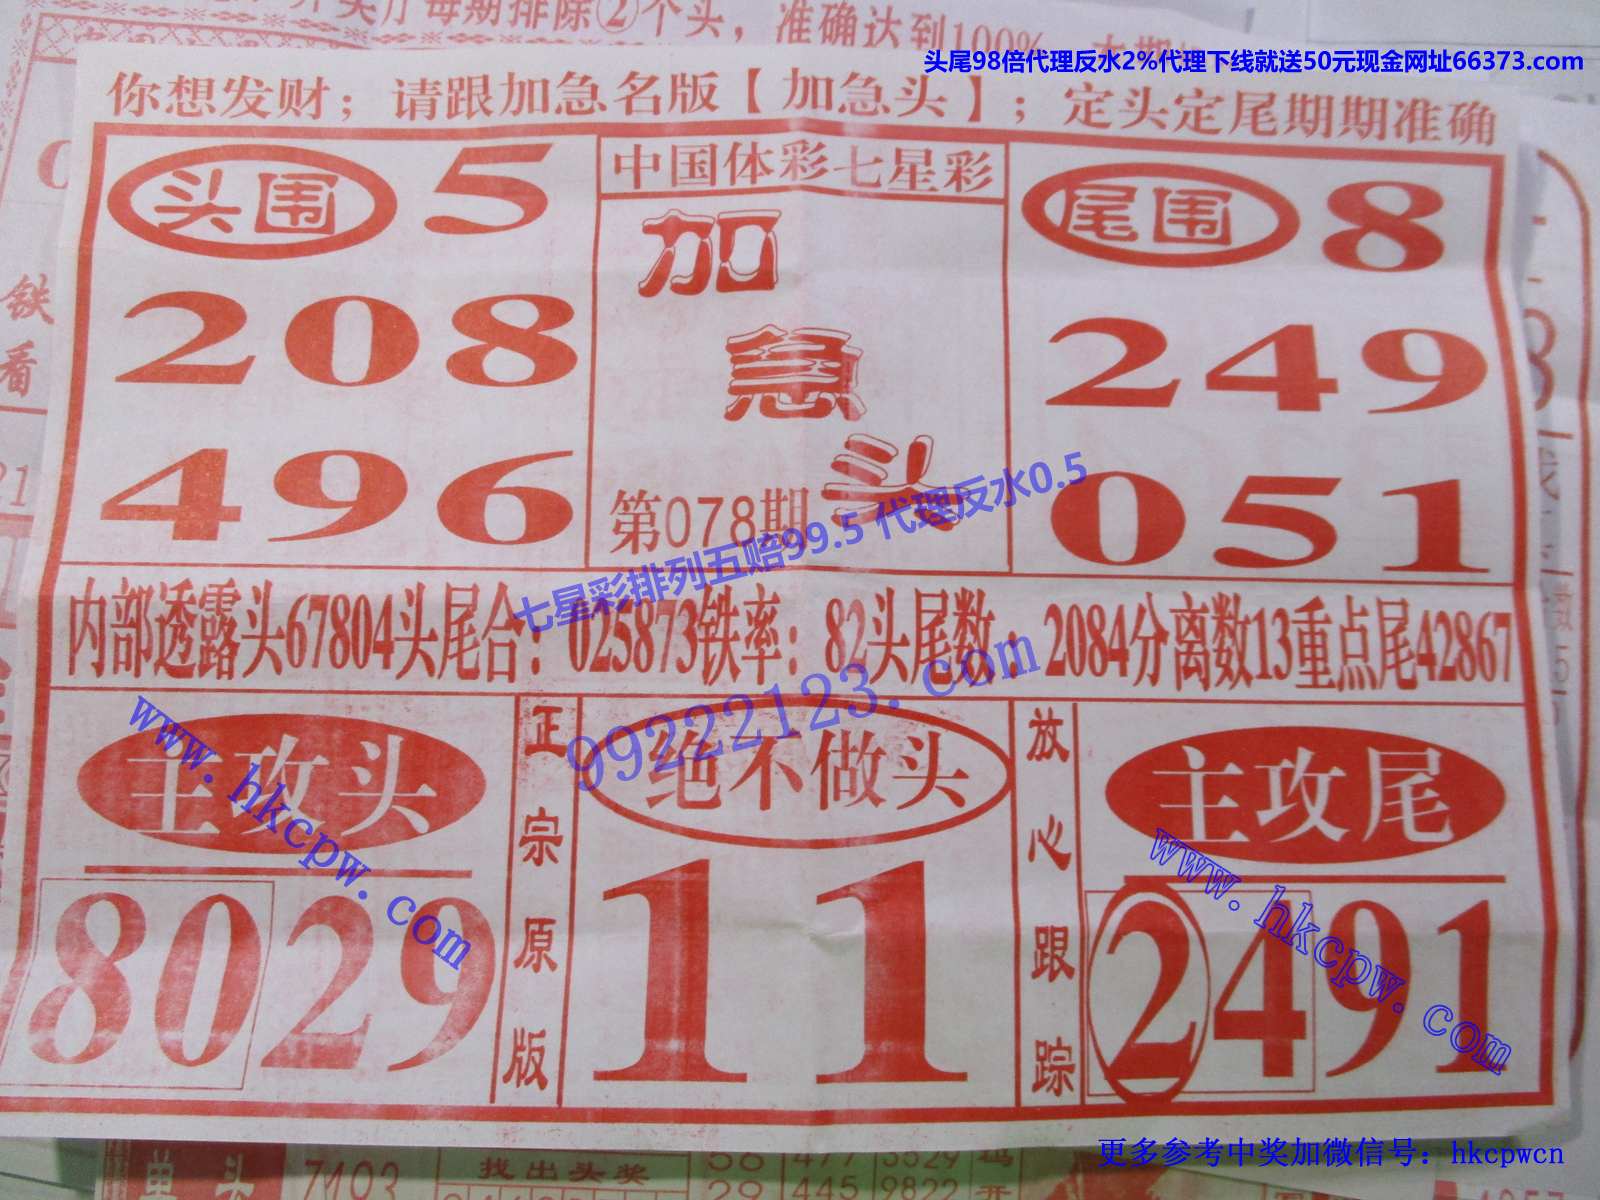 开奖厅每期排除②个头，准确达到100%
头尾98倍代理反水2%代理下线就送50元现金网址66373.com
你想发财；请跟加急名版【加急头】；定头定尾期期准确
头围 5
208
496
中国体彩七星彩
加
急
头
第078期
尾围 8
249
051
七星彩排列五赔99.5 代理反水0.5
内部透露头67804头尾合：025873铁率：82头尾数：2084分离数13重点尾42867
99222123.com
主攻头
8029
www.hkcpw.com
正宗原版
绝不做头
11
放心跟踪
主攻尾
2491
www.hkcpw.com
铁
看
21
更多参考中奖加微信号：hkcpwcn
单头
7103
找出头奖
58
477
3529
29
445
9822